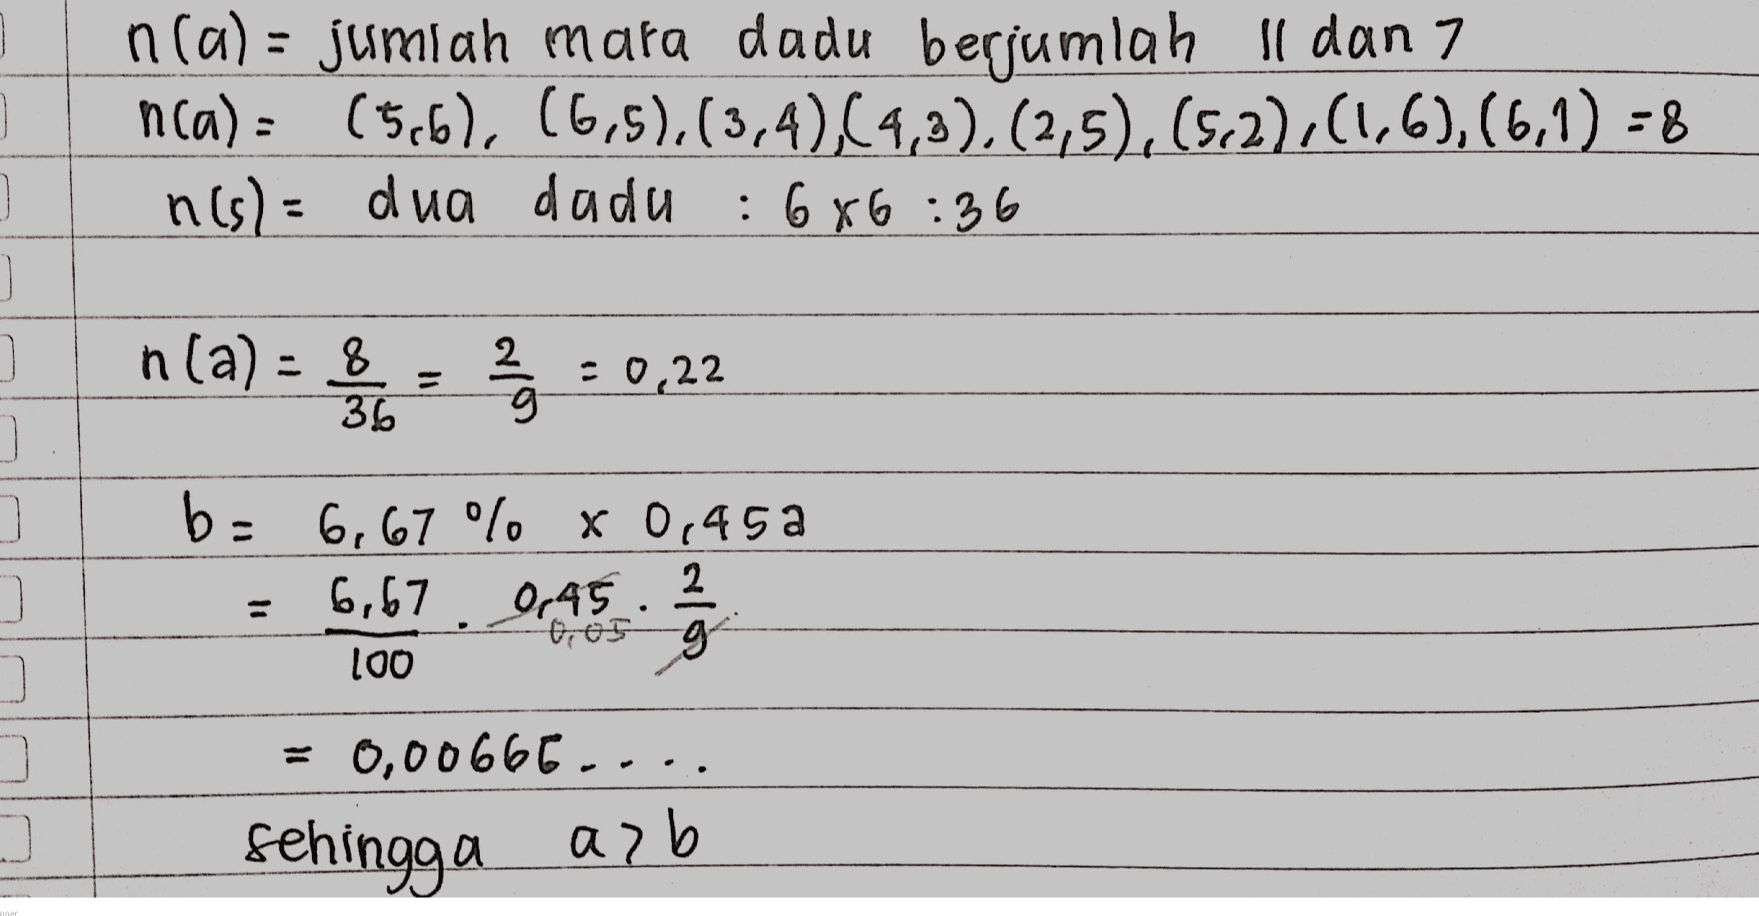 n(a) = jumlah mata dadu berjumlah 11 dan 7
n(a) = (5,6), (6,5), (3,4), (4,3), (2,5), (5,2), (1,6), (6,1) = 8
n(s) = dua dadu : 6 x 6 : 36
n(a) = 8/36 = 2/9 = 0,22
b = 6,67 % x 0,45a
= 6,67/100 . 0,45 . 2/9
0,05
= 0,00666....
sehingga a > b